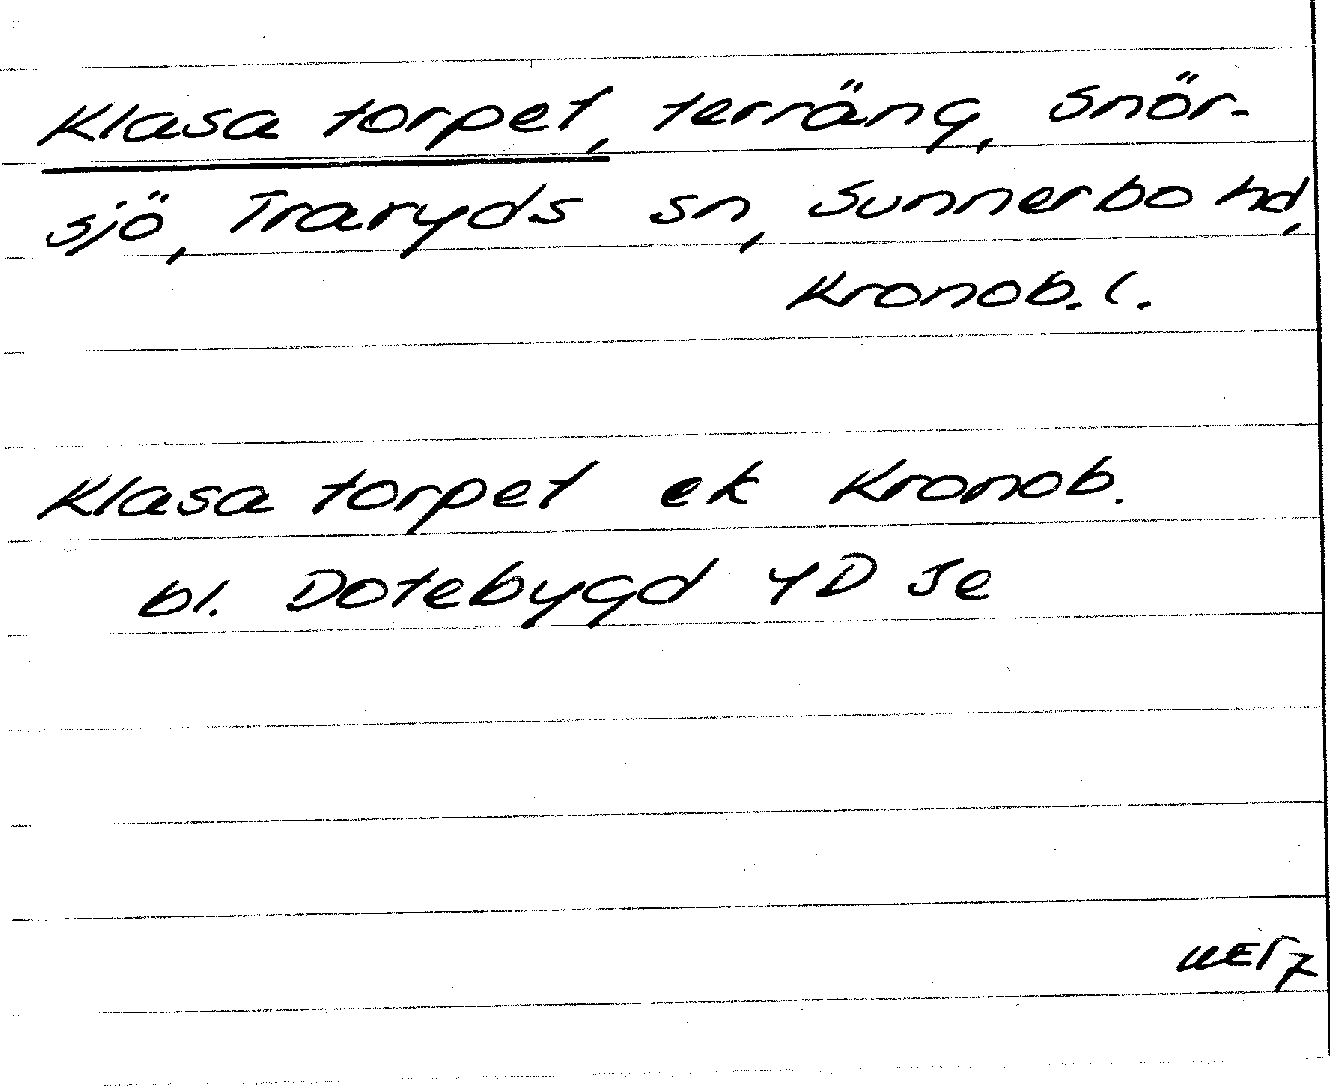 Klasa torpet, terräng, Snör-
sjö, Traryds sn, Sunnerbo hd,
Kronob. l.
Klasa torpet ek Kronob.
bl. Dotebygd 4D Je